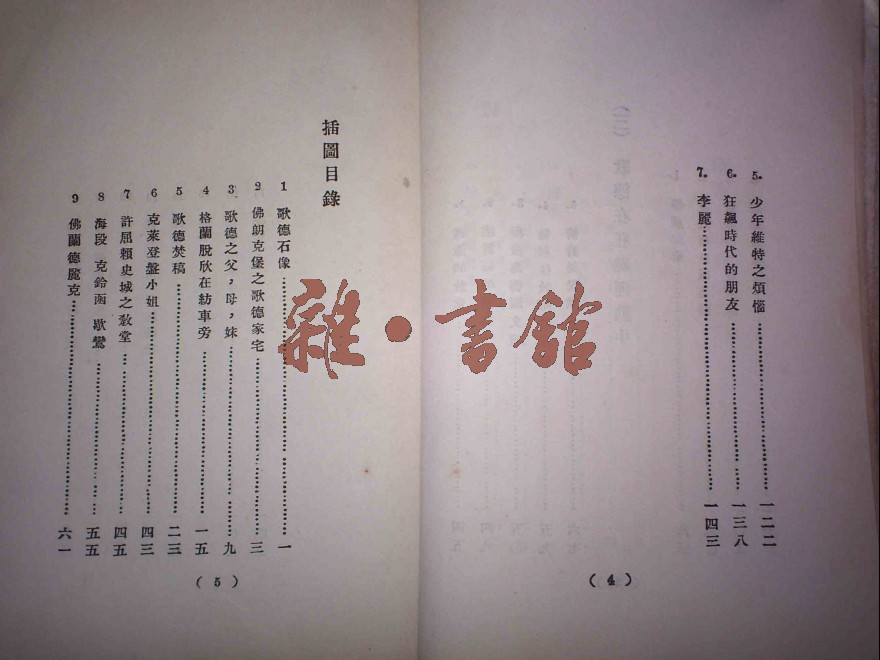 5. 少年維特之煩惱………………一二二
6. 狂飈時代的朋友………………一三八
7. 李麗………………一四三
(4)
插圖目錄
1 歌德石像………………一
2 佛朗克堡之歌德家宅………………三
3 歌德之父，母，妹………………九
4 格蘭脫欣在紡車旁………………一五
5 歌德焚稿………………二三
6 克萊登盤小姐………………四三
7 許屈賴史城之教堂………………四五
8 海段 克鈴函 歌鶯………………五五
9 佛蘭德麗克………………六一
(5)
雜·書館